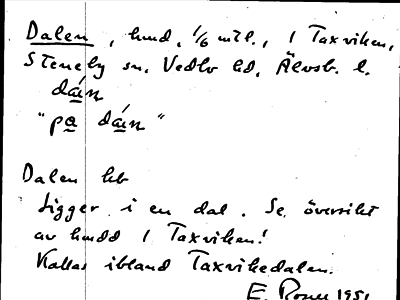 Dalen, hmd, 1/6 mtl., 1 Taxviken,
Steneby sn. Vedbo hd, Älvsb. l.
dán
"pa dán"
Dalen hb
Ligger i en dal. Se översikt
av hmdd 1 Taxviken!
Kallas ibland Taxvikedalen.
E. Rosell 1951